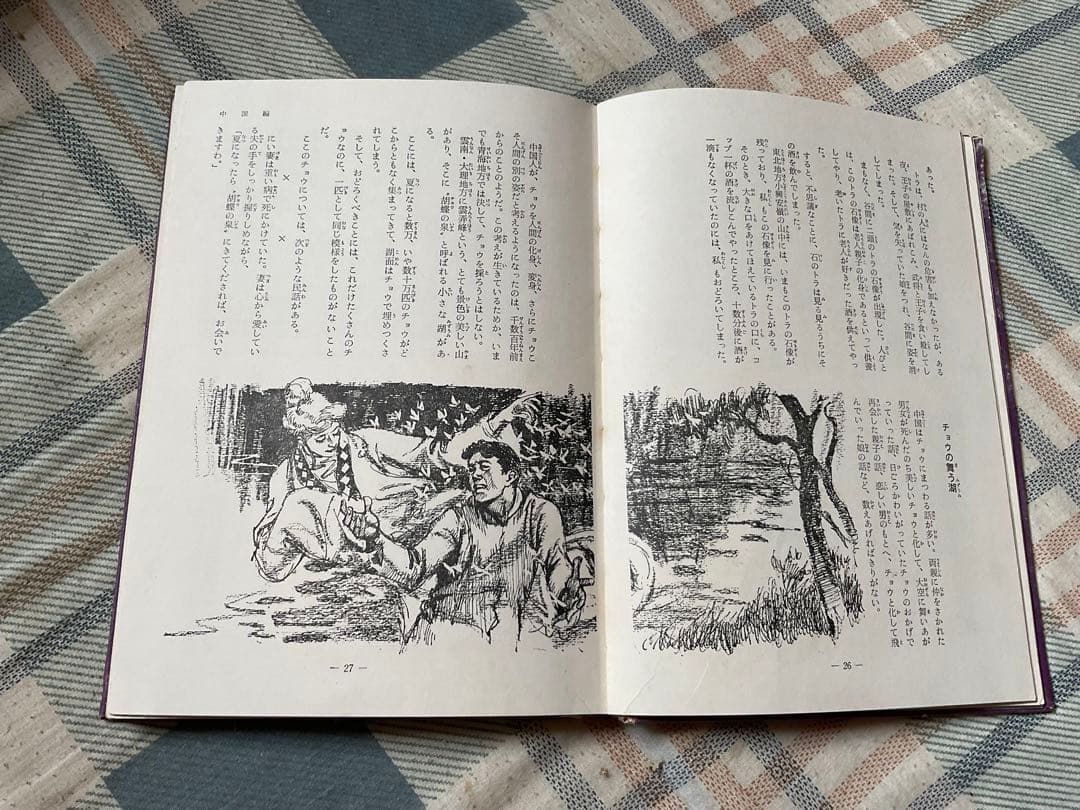 あった。
トラは、村の人にはなんの危害も加えなかったが、ある
夜、王子の屋敷にあばれこみ、武将と王子を食い殺してし
まった。そして、気を失っていた娘をつれ、谷間に姿を消
してしまった。
まもなく、谷間に二頭のトラの石像が出現した。人びと
は、このトラの石像は老人親子の化身であるといって供養
してやり、老いたトラに老人が好きだった酒を供えてやっ
た。
すると、不思議なことに、石のトラは見る見るうちにそ
の酒を飲んでしまった。
東北地方小興安嶺の山中には、いまもこのトラの石像が
残っており、私もこの石像を見に行ったことがある。
そのとき、大きな口をあけてほえているトラの口に、コ
ップ一杯の酒を流しこんでやったところ、十数分後に酒が
一滴もなくなっていたには、私もおどろいてしまった。
チョウの舞う湖
中国はチョウにまつわる話が多い。両親に仲をさかれた
男女が死んだのち美しいチョウと化して、大空に舞いあが
っていった話、日ごろかわいがっていたチョウのおかげで
再会した親子の話、恋しい男のもとへ、チョウと化して飛
んでいった娘の話など、数えあげればきりがない。
— 26 —
中国編
中国人が、チョウを人間の化身、変身、さらにチョウこ
そ人間の別の姿だと考えるようになったのは、千数百年前
からのことのようだ。この考えが生きているためか、いま
でも青海地方では決して、チョウを採ろうとはしない。
雲南・大理地方に雲弄峰という、とても景色の美しい山
があり、そこに"胡蝶の泉"と呼ばれる小さな湖があ
る。
ここには、夏になると数万、いや数十万匹のチョウがど
こからともなく集まってきて、湖面はチョウで埋めつくさ
れてしまう。
そして、おどろくべきことには、これだけたくさんのチ
ョウなのに、一匹として同じ模様をしたものがないこと
だ。
このチョウについては、次のような民話がある。
× × ×
にい妻は重い病で死にかけていた。妻は心から愛してい
る夫の手をしっかり握りしめながら、
「夏になったら"胡蝶の泉"にきてくだされば、お会いで
きますわ。
— 27 —